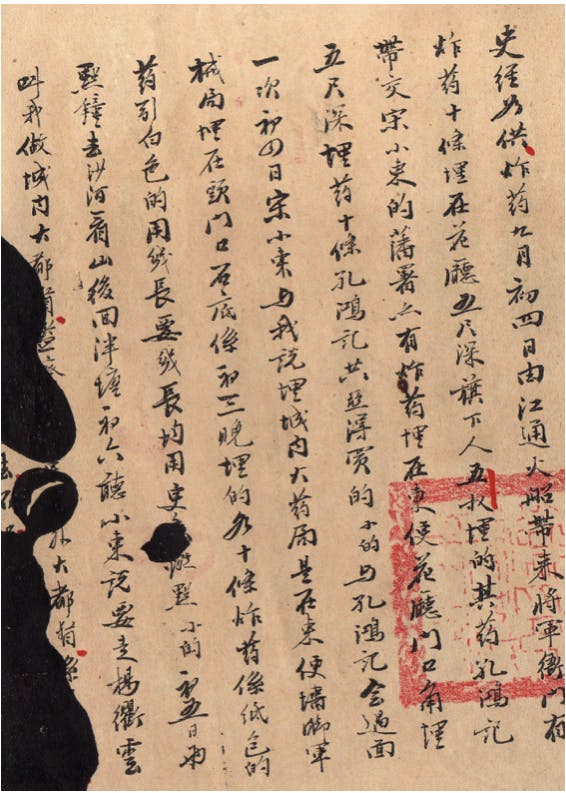 史經如供炸药九月初四日由江通火船帶来將軍衙門有
炸药十條埋在花廳五尺深旗下人五叔埋的其药孔鴻記
帶交宋小東的藩署亦有炸药埋在東便花廳門口角埋
五尺深埋药十條孔鴻記共亞潭買的小的与孔鴻記会過面
一次初四日宋小東与我說埋城内大药局是在東便墻脚軍
械局埋在頭門口石底係初三晚埋的九十條炸药係纸包的
药引白色的用线長要线長均用史 點小的初五日兩
點鐘去沙河看山後回泮塘初六聽小東說要走楊衢雲
叫我做城内大都 大都